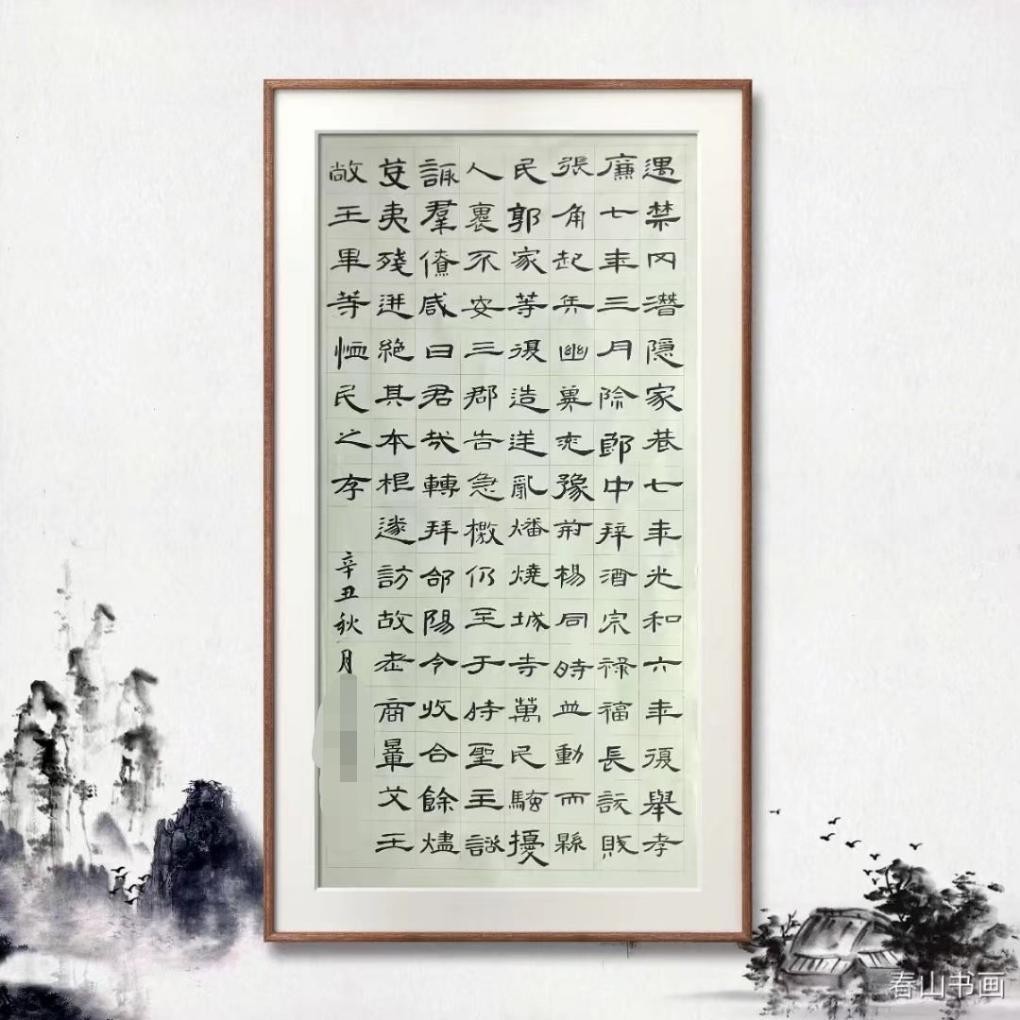 遇禁冈潛隱家巷七年光和六年復舉孝
廉七年三月除郎中拜酒宗祿福長訞賊
張角起兵幽冀兗豫荊楊同時並動而縣
民郭家等復造逆亂燔燒城寺萬民騷擾
人裏不安三郡告急檄仍至于時聖主諮
諏羣僚咸曰君哉轉拜郃陽令收合餘燼
芟夷殘迸絕其本根遂訪故老商量艾王
敞王畢等恤民之存
辛丑秋月
春山书画